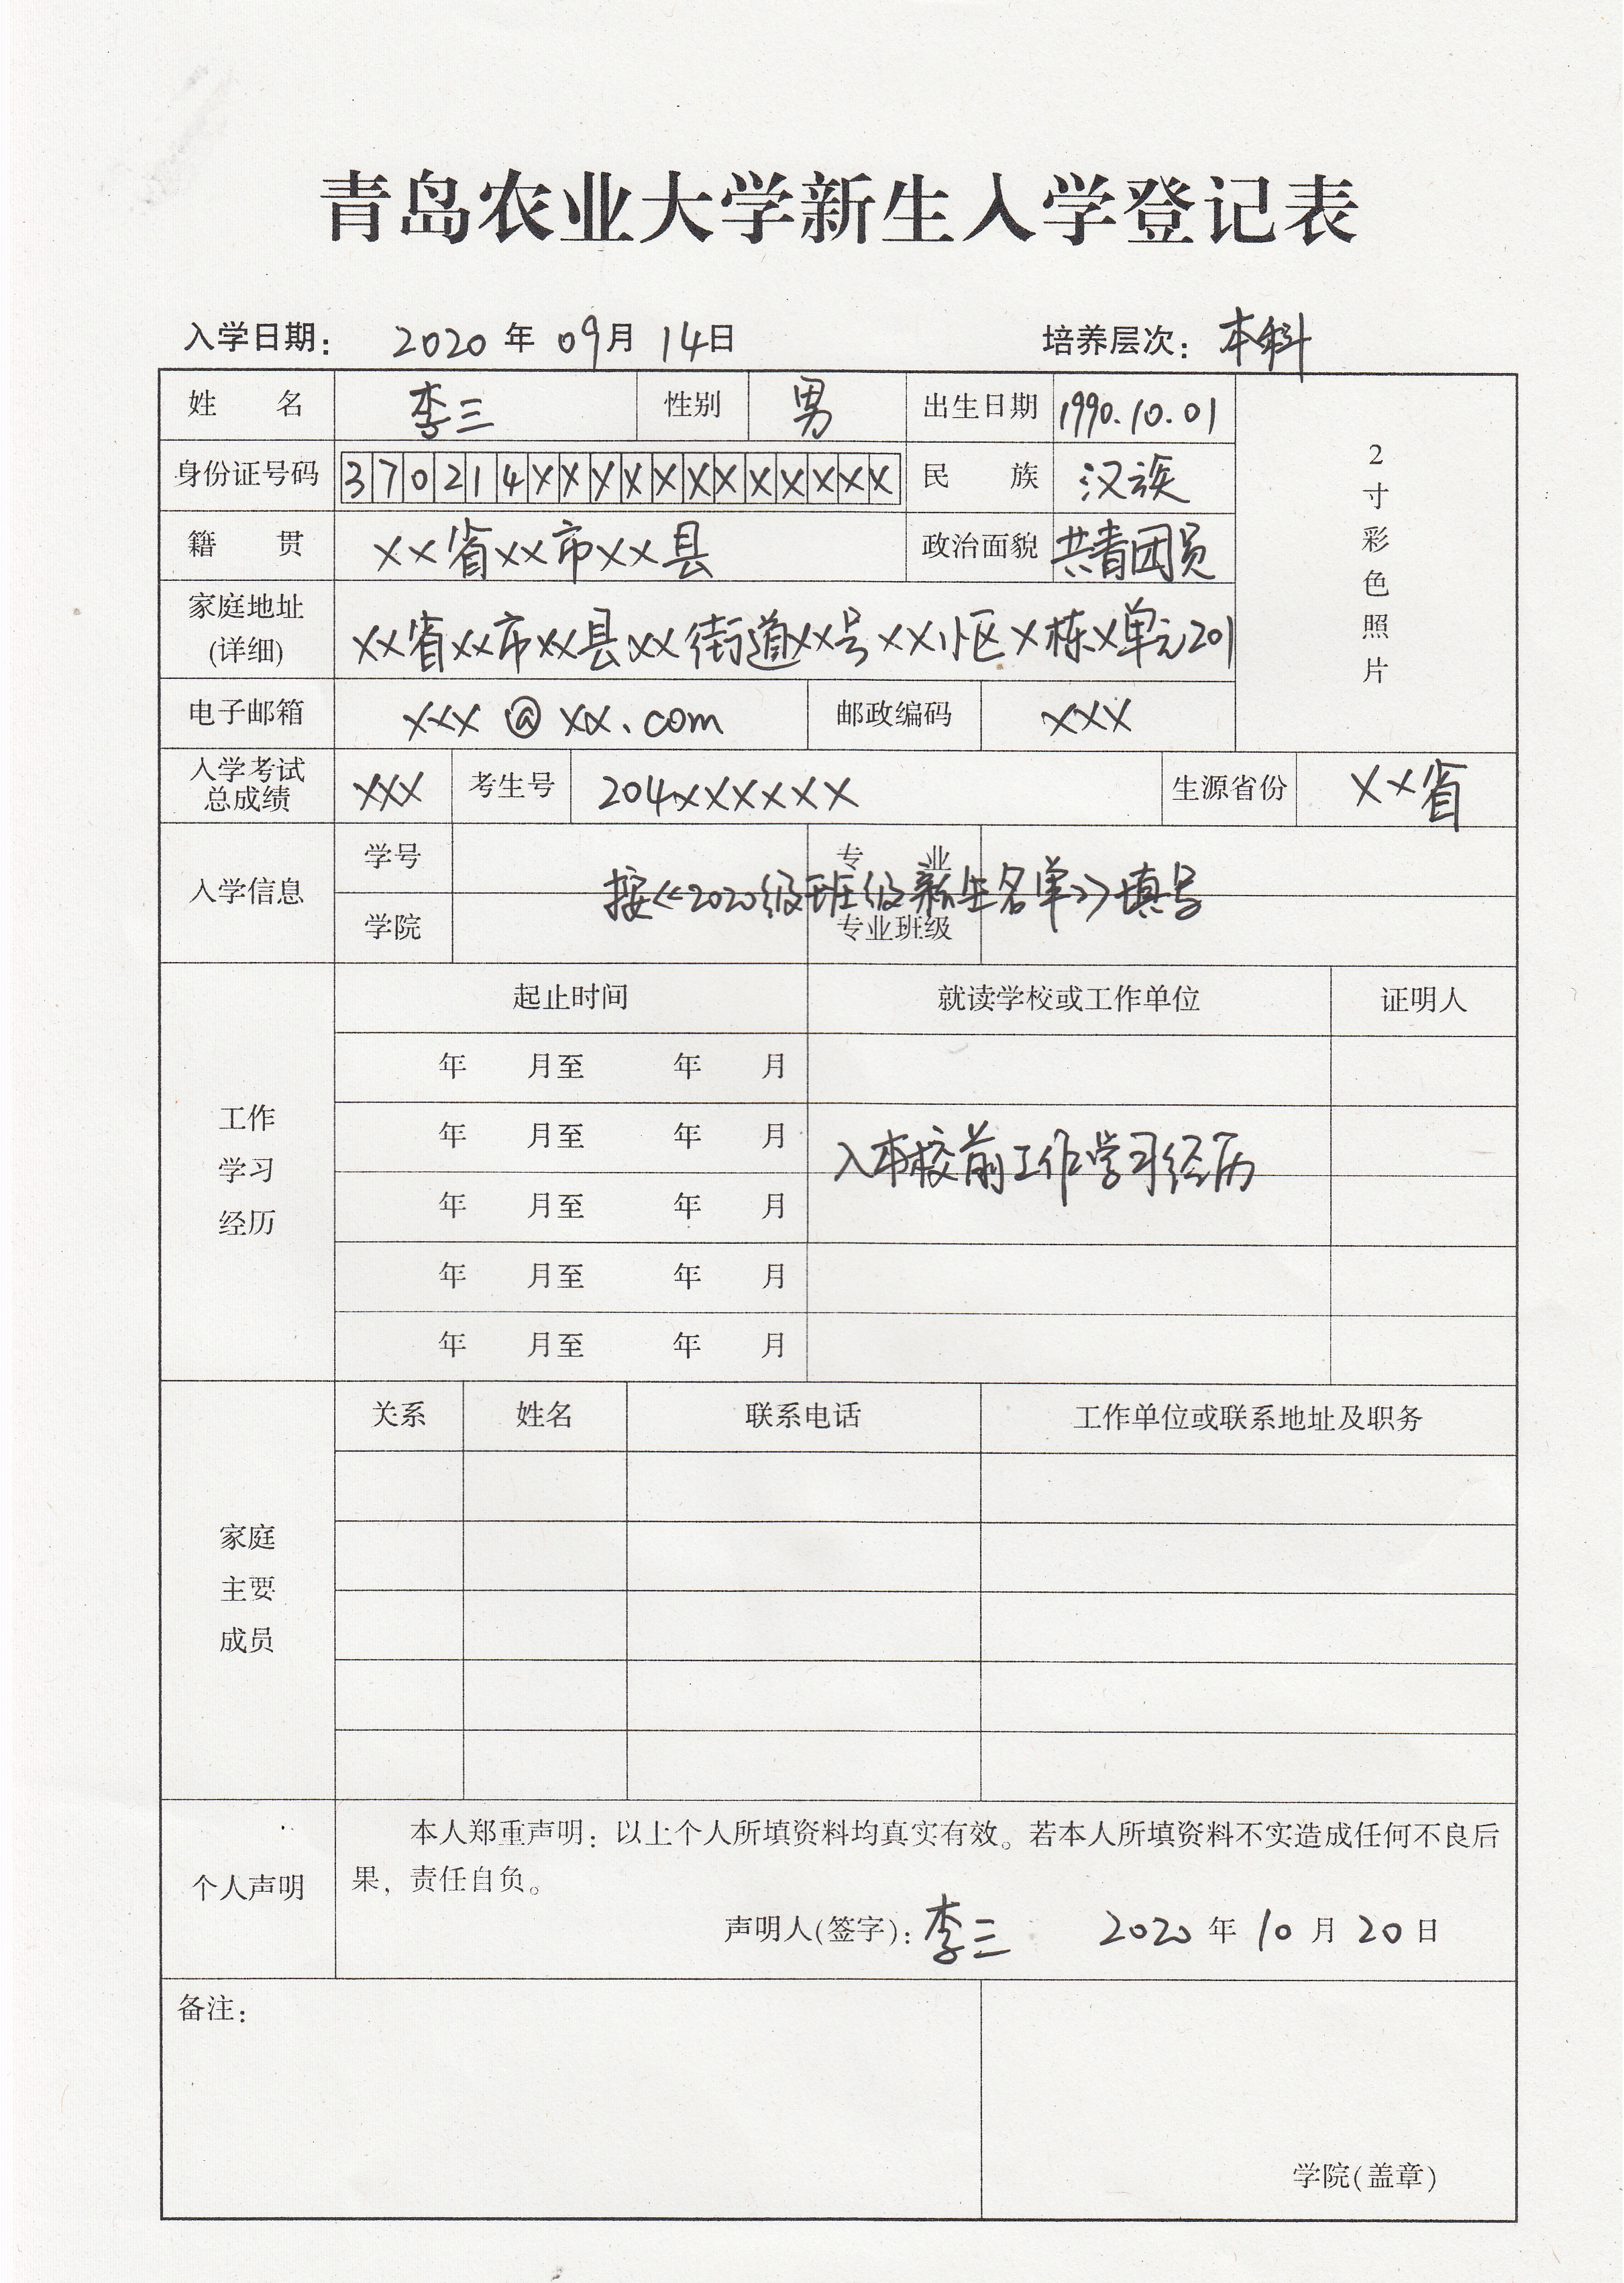 青岛农业大学新生入学登记表
入学日期： 2020 年 09月 14日 培养层次：本科
姓 名 李三 性别 男 出生日期 1990.10.01
2寸彩色照片
身份证号码 370214XXXXXXXXXXXX 民 族 汉族
籍 贯 XX省XX市XX县 政治面貌 共青团员
家庭地址
(详细) XX省XX市XX县XX街道XX号XX小区X栋X单元201
电子邮箱 XXX@XX.com 邮政编码 XXX
入学考试
总成绩 XXX 考生号 204XXXXXX 生源省份 XX省
入学信息 学号 专 业
按《2020级班级新生名单》填写
学院 专业班级
起止时间 就读学校或工作单位 证明人
年 月至 年 月
工作
年 月至 年 月
入本校前工作学习经历
学习
年 月至 年 月
经历
年 月至 年 月
年 月至 年 月
关系 姓名 联系电话 工作单位或联系地址及职务
家庭
主要
成员
个人声明
本人郑重声明：以上个人所填资料均真实有效。若本人所填资料不实造成任何不良后
果，责任自负。
声明人(签字)：李三 2020 年 10 月 20 日
备注：
学院(盖章)